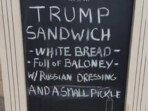 TRUMP
SANDWICH
- WHITE BREAD -
- FULL OF BALONEY -
W/ RUSSIAN DRESSING
AND A SMALL PICKLE